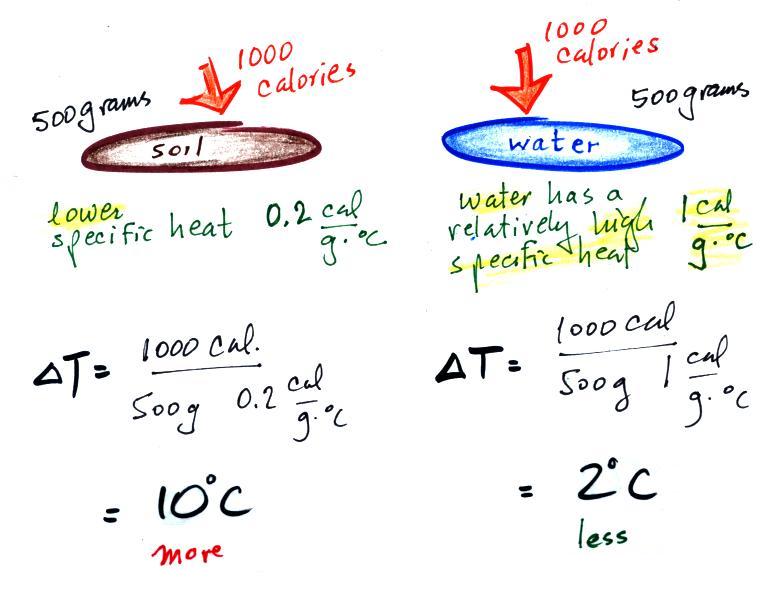 1000
calories
500 grams
soil
lower
specific heat 0.2 cal
g·°C
ΔT = 1000 cal.
500g 0.2 cal
g·°C
= 10°C
more
1000
calories
500 grams
water
water has a
relatively high 1 cal
specific heat g·°C
ΔT = 1000 cal
500g 1 cal
g·°C
= 2°C
less